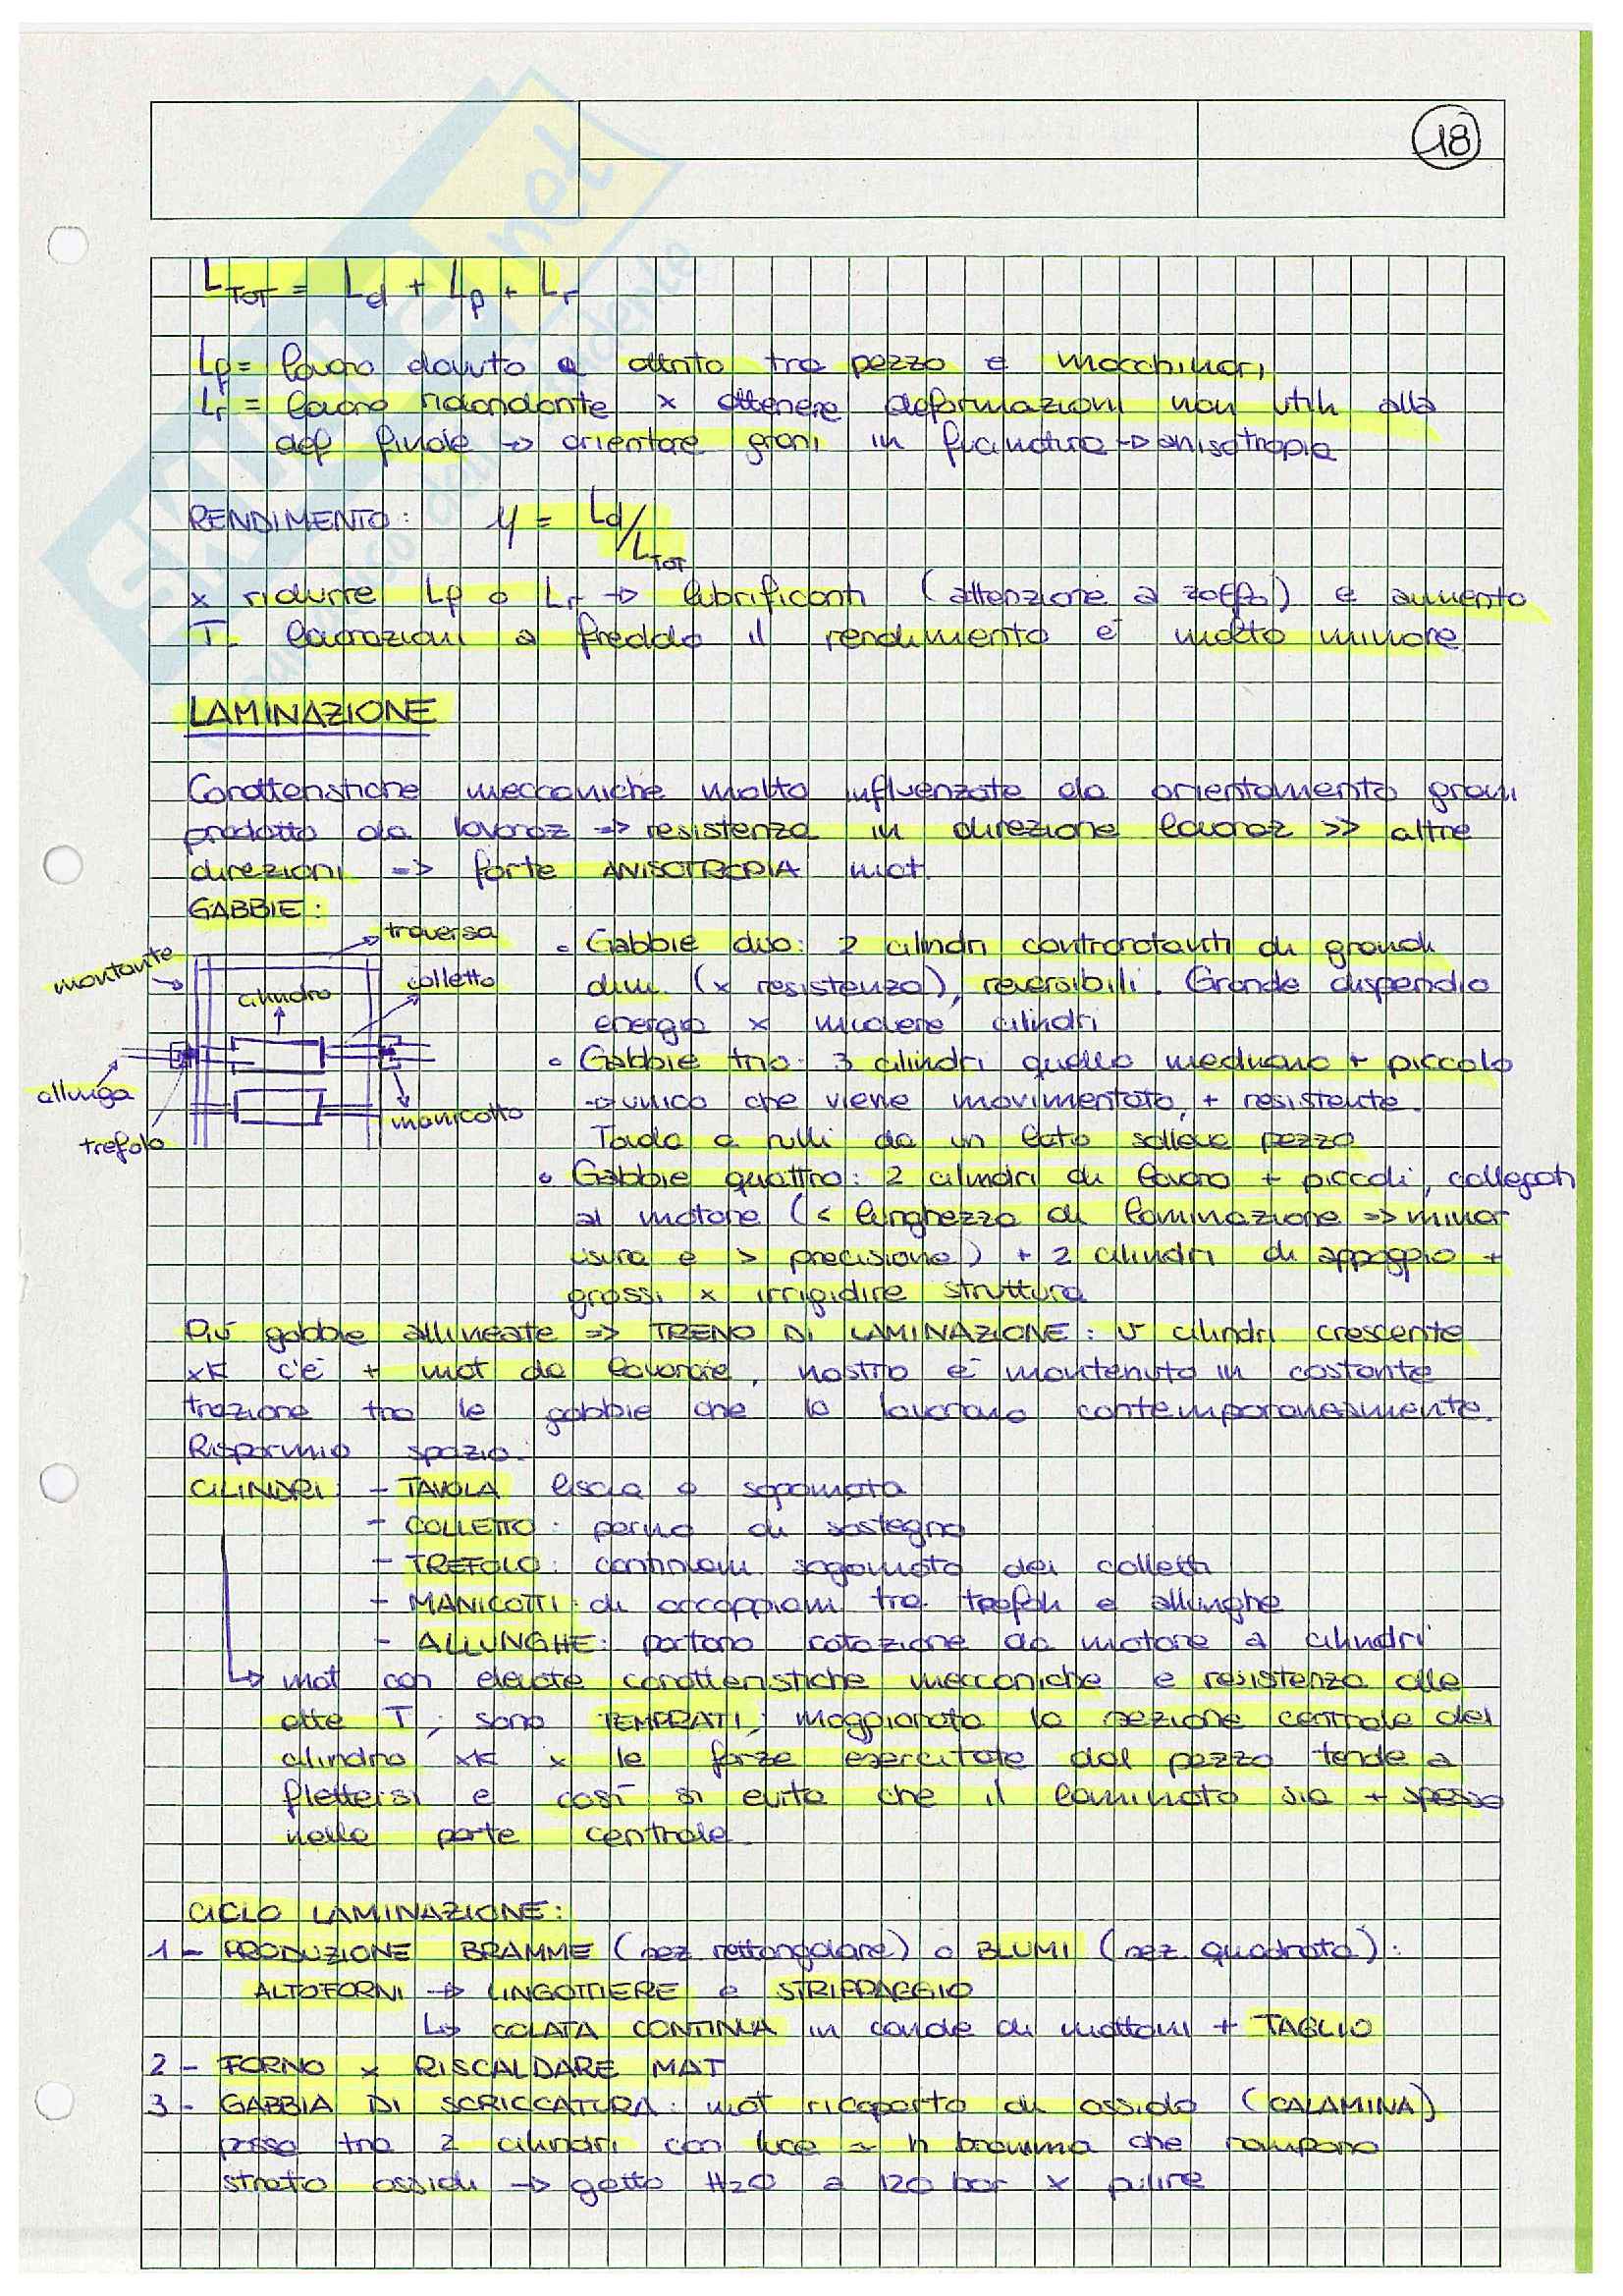 18
L_TOT = L_d + L_p + L_r
Lp = lavoro dovuto a attrito tra pezzo e macchinari
Lr = lavoro ridondante x ottenere deformazioni non utili alla
def finale → orientare grani in fucinatura → anisotropia
RENDIMENTO: η = Ld/L_TOT
x ridurre Lp o Lr → lubrificanti (attenzione a zolfo) e aumento
T. lavorazioni a freddo il rendimento è molto minore
LAMINAZIONE
Caratteristiche meccaniche molto influenzate da orientamento grani
prodotto da lavoraz => resistenza in direzione lavoraz >> altre
direzioni => forte ANISOTROPIA mat.
GABBIE:
montante
traversa
colletto
cilindro
allunga
trefolo
manicotto
• Gabbie duo: 2 cilindri controrotanti di grandi
dim. (x resistenza), reversibili. Grande dispendio
energia x muovere cilindri
• Gabbie trio: 3 cilindri quello mediano + piccolo
→ unico che viene movimentato, + resistente.
Tavola a rulli da un lato solleva pezzo
• Gabbie quattro: 2 cilindri di lavoro + piccoli, collegati
al motore (< lunghezza di laminazione => minor
usura e > precisione) + 2 cilindri di appoggio +
grossi x irrigidire struttura
Più gabbie allineate => TRENO DI LAMINAZIONE: v cilindri crescente
xk c'è + mat da lavorare, nastro è mantenuto in costante
trazione tra le gabbie che lo lavorano contemporaneamente.
Risparmio spazio.
CILINDRI - TAVOLA liscia o sagomata
- COLLETTO: perno di sostegno
- TREFOLO: continuam. sagomato dei colletti
- MANICOTTI: di accoppiam tra trefoli e allunghe
- ALLUNGHE: portano rotazione da motore a cilindri
↳ mat con elevate caratteristiche meccaniche e resistenza alle
alte T; sono TEMPRATI; maggiorata la sezione centrale del
cilindro xk x le forze esercitate dal pezzo tende a
flettersi e così si evita che il laminato sia + spesso
nella parte centrale.
CICLO LAMINAZIONE:
1 - PRODUZIONE BRAMME (sez rettangolare) o BLUMI (sez. quadrata):
ALTOFORNI → LINGOTTIERE e STRIPPAGGIO
↳ COLATA CONTINUA in conde di mattoni + TAGLIO
2 - FORNO x RISCALDARE MAT
3 - GABBIA DI SCRICCATURA: mat ricoperto di ossido (CALAMINA)
passa tra 2 cilindri con luce ≃ h bramma che rompono
strato ossidi → getto H2O a 120 bar x pulire